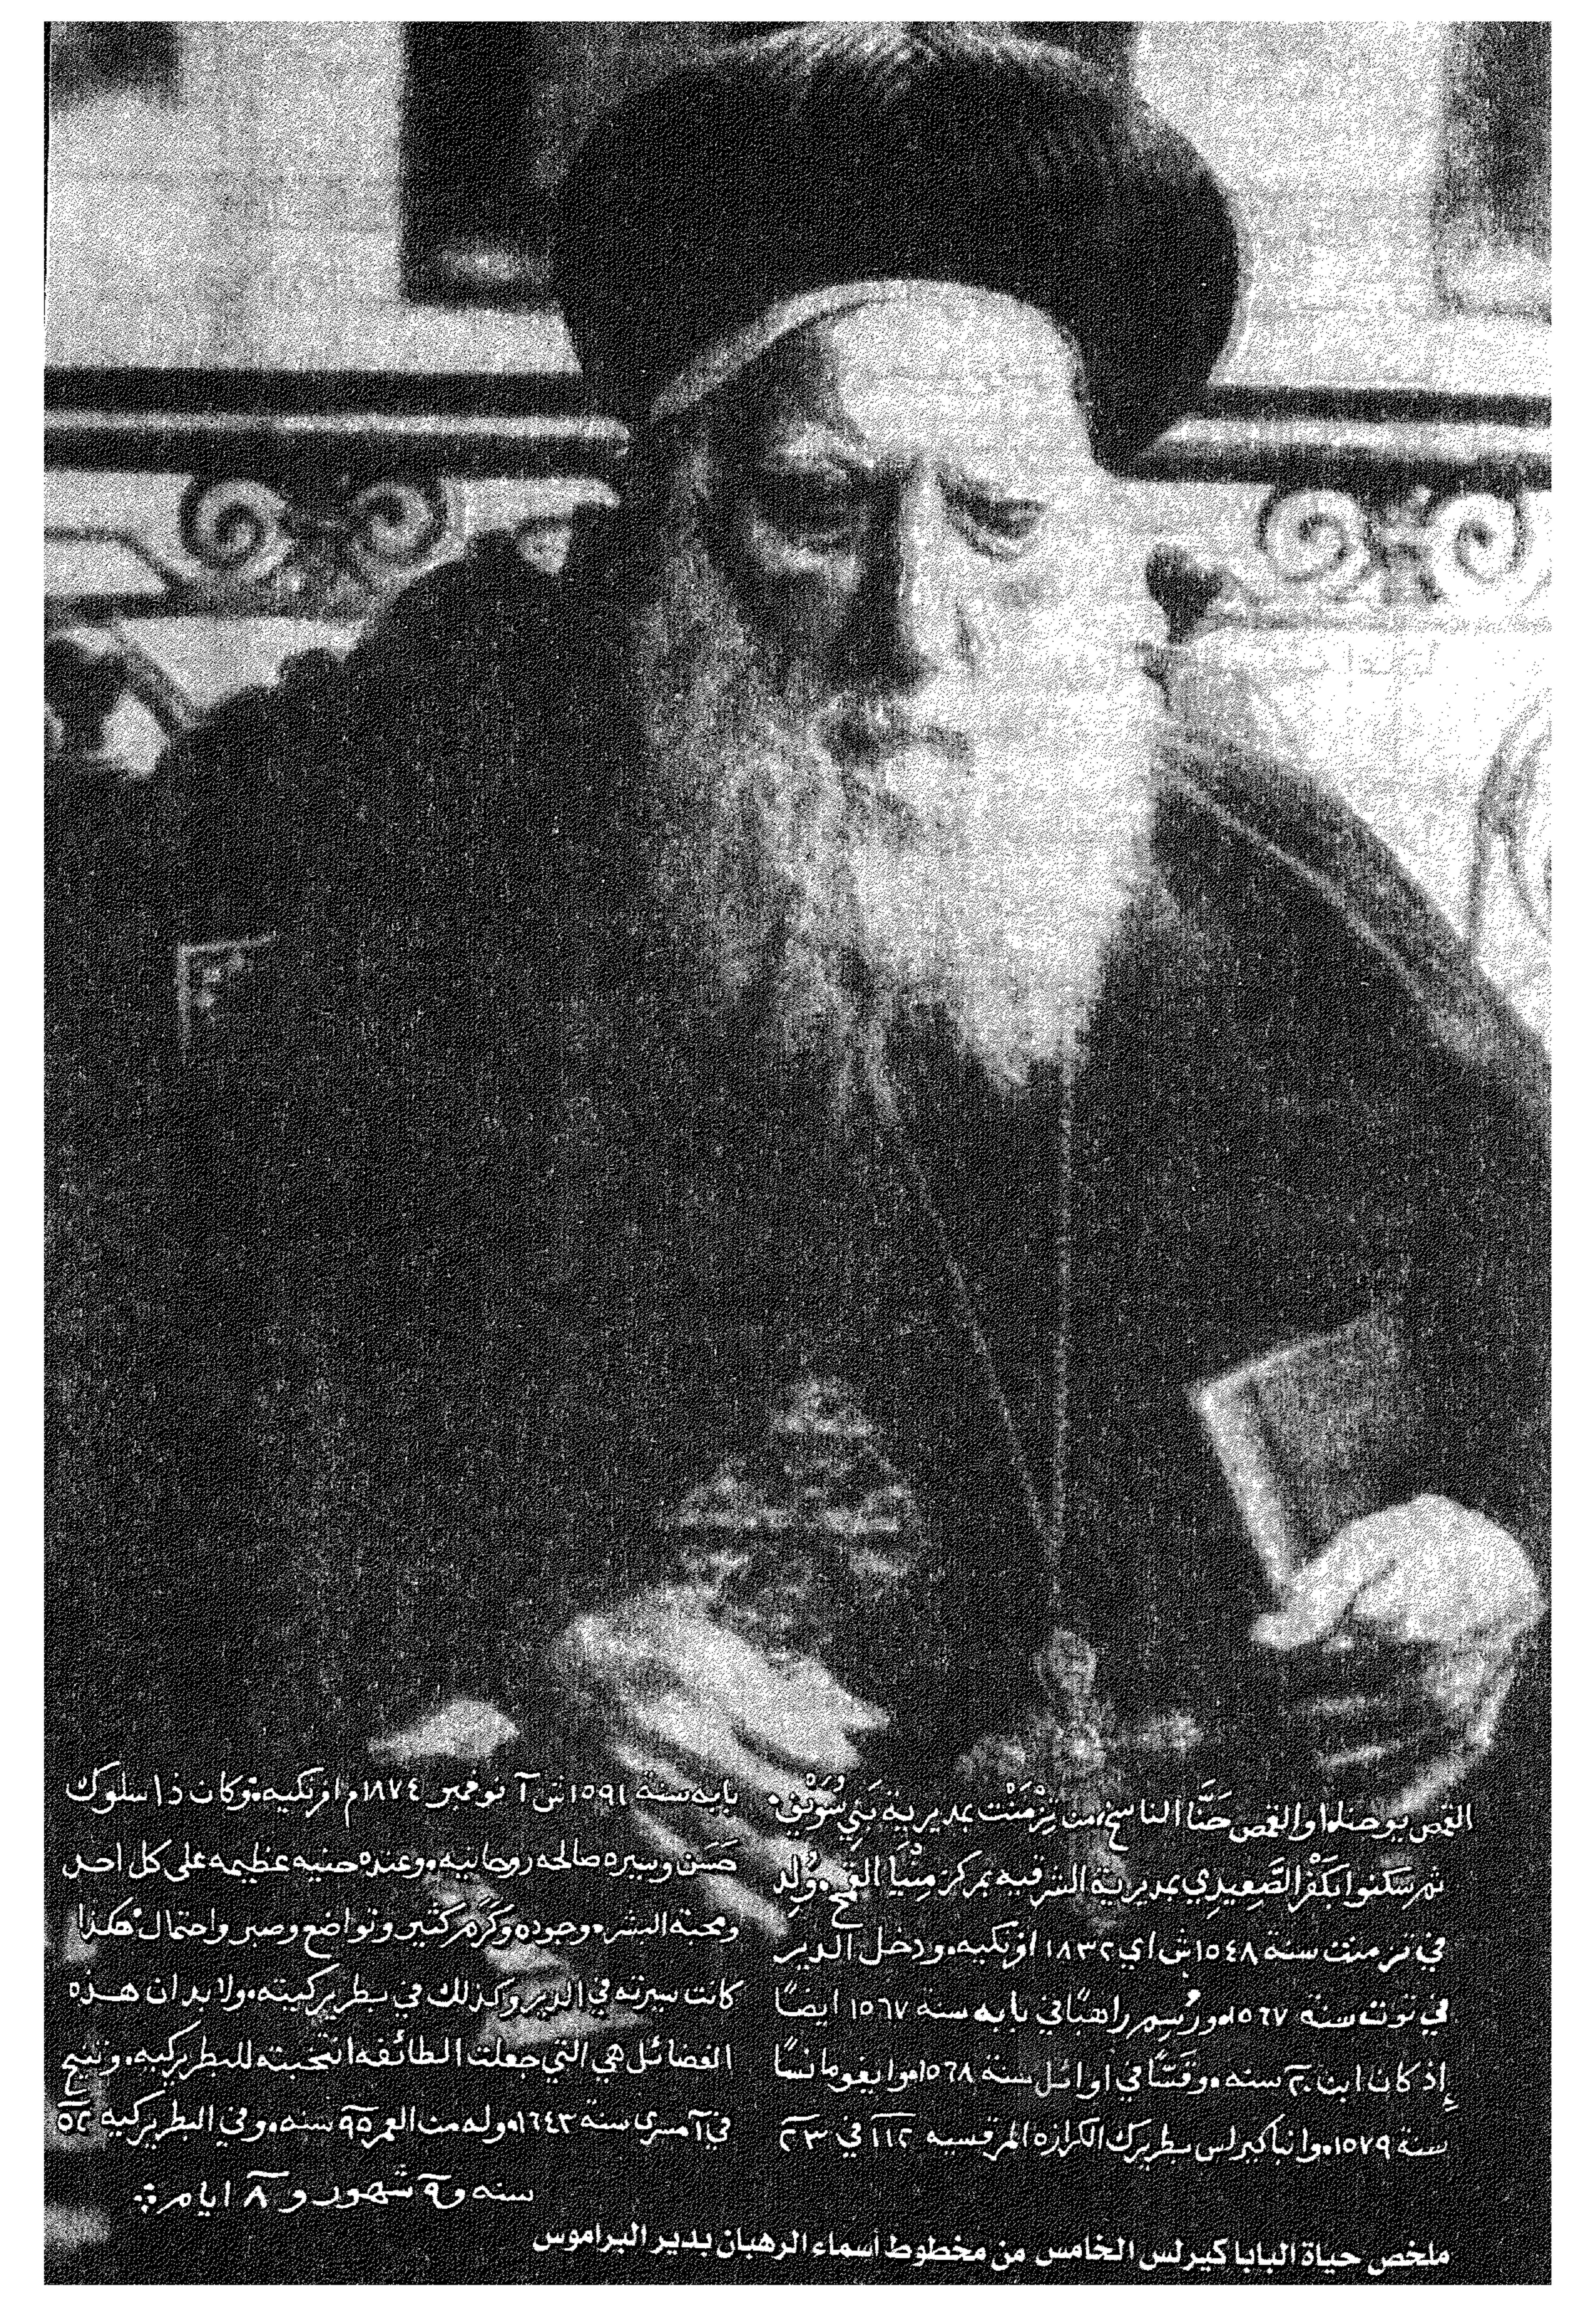 القمص يوحنا، او القمص حَنَّا الناسخ، من تِزْمَنْت بمديرية بَنِي سُوَيْف.
ثم سكنوا بكَفْر الصَّعِيدِي بمديرية الشرقيه بمركز مِنْيَا القمح. وُلِدَ
في تزمنت سنة ١٥٤٨ش اي ١٨٣٢ افرنكيه. ودخل الدير
في توت سنة ١٥٦٧. ورُسِم راهبًا في بابه سنة ١٥٦٧ ايضًا
إذ كان ابن ٢٠ سنه. وقَسًّا في اوائل سنة ١٥٦٨. وايغومانسًا
سنة ١٥٧٩. وانبا كيرلس بطريرك الكرازه المرقسيه ١١٢ في ٢٣
بابه سنة ١٥٩١ش ١ نوفمبر ١٨٧٤م افرنكيه. وكان ذا سلوك
حَسَن وسيره صالحه روحانيه. وعنده حنيه عظيمه على كل احد
ومحبة البشر. وجوده وكَرَم كثير وتواضع وصبر واحتمال. هكذا
كانت سيرته في الدير وكذلك في بطريركيته. ولا بد ان هذه
الفضائل هي التي جعلت الطائفه انتخبته للبطريركيه. وتنيح
في ١ مسرى سنة ١٦٤٣. وله من العمر ٩٥ سنه. وفي البطريركيه ٥٢
سنه و٩ شهور و٨ ايام
ملخص حياة البابا كيرلس الخامس من مخطوط أسماء الرهبان بدير البراموس